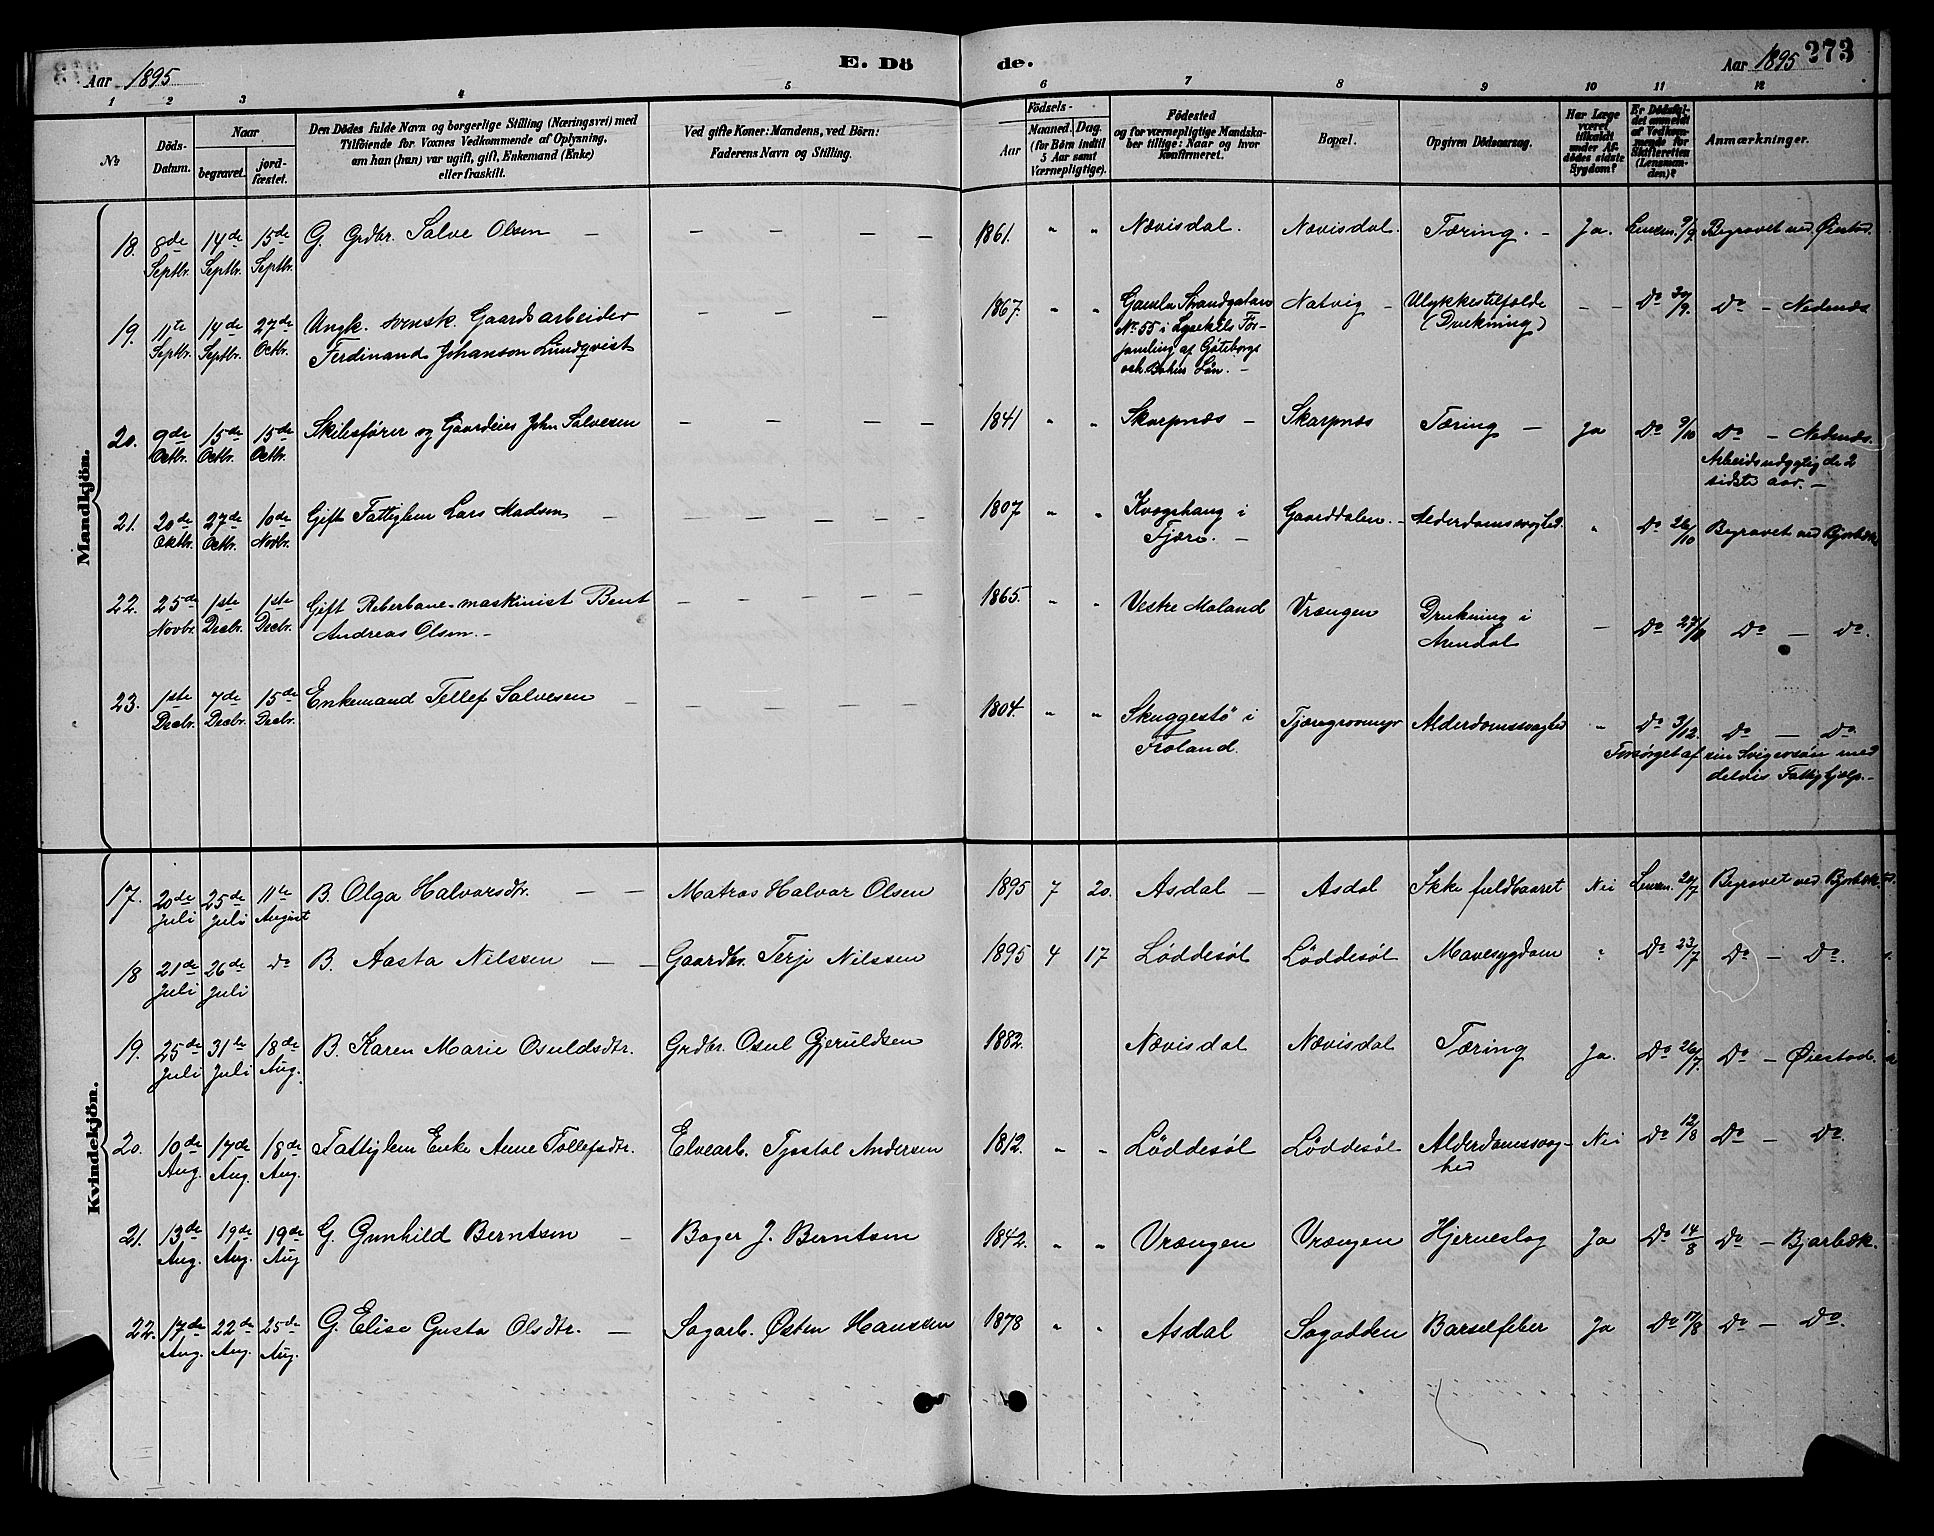 Aar 1895
E. Dö
de.
Aar 1895
273
1 2 3 4 5 6 7 8 9 10 11 12
№
Döds-
Datum.
Naar
begravet.
jord-
fæstet.
Den Dödes fulde Navn og borgerlige Stilling (Næringsvei) med
Tilföiende for Voxnes Vedkommende af Oplysning,
om han (hun) var ugift, gift, Enkemand (Enke)
eller fraskilt.
Ved gifte Koner: Mandens, ved Börn:
Faderens Navn og Stilling.
Födsels-
Aar
Maaned. Dag.
(for Börn indtil
5 Aar samt
Værnepligtige).
Födested
og for værnepligtige Mandska-
ber tillige: Naar og hvor
konfirmeret.
Bopæl.
Opgiven Dödsaarsag.
Har Læge
været
tilkaldt
under Af-
dödes sidste
Sygdom?
Er Dödsfal-
det anmeldt
af Vedkom-
mende for
Skifteretten
(Lensman-
den)?
Anmærkninger.
Mandkjön.
18. 8de Septbr. 14de Septbr. 15de Septbr. G. Grdbr. Salve Olsen — — — — — 1861. " " Nævisdal. Nævisdal. Tæring. — Ja. Lensm. 9/9 Begravet ved Øiestad.
19. 11te Septbr. 14de Septbr. 27de Octbr. Ungk. svensk. Gaardsarbeider
Ferdinand Johanson Lundqvist — — — — 1867. " " Gamla Strandgatan
№ 55 i Lysekils För-
samling af Göteborgs
och Bohus Län. — Natvig — Ulykkestilfælde
(Drukning) — — Do 30/9. Do — Nedenes
20. 9de Octbr. 15de Octbr. 15de Octbr. Skibsfører og Gaardeier John Salvesen — — — — 1841 " " Skarpnæs — Skarpnæs Tæring — Ja Do 9/10 Do — Nedenæs.
Arbeidsudygtig de 2
sidste aar. —
21. 20de Oktbr. 27de Octbr. 10de Novbr. Gift Fattiglem Lars Madsen — — — — — 1807 " " Krogshang i
Fjære. — Gaarddalen. — Alderdomssvaghed. " Do 26/10 Begravet ved Bjorbæk
22. 25de Novbr. 1ste Decbr. 1ste Decbr. Gift Reberbane-maskinist Bent
Andreas Olsen. — — — — — 1865. " " Vestre Moland Vrængen Drukning i
Arendal — Do Do — Do.
23. 1ste Decbr. 7de Decbr. 15de Decbr. Enkemand Tellef Salvesen — — — — — 1804. " " Skuggestö i
Froland. Alderdomssvaghed " Do 3/12. Do — Do.
Forsørget af sin Svigersøn med
delvis Fattighjælp. —
Kvindekjön.
17. 20de Juli 25de Juli 11te August B. Olga Halvorsdtr. — — Matros Halvor Olsen 1895 7 20. Asdal — Asdal Ikke fuldbaaret Nei Lensm. 24/7 Begravet ved Bjorbæk.
18 21de Juli 26de Juli do B. Aasta Nilssen — — Gaardbr. Terje Nilssen 1895 4 17 Løddesøl Løddesøl Mavesygdom " Do 23/7 Do — Do.
19. 25de Juli 31te Juli 18de Aug. B. Karen Marie Osuldsdtr. Grdbr. Osul Gjeruldsen 1882. Nævisdal Nævisdal Tæring Ja. Do 26/7. Do — Øiestad.
20. 10de Aug. 17de Aug. 18de Aug. Fattiglem Enke Anne Tollefsdtr. Elvearb. Tjostol Andersen 1812. " " Løddesøl Løddesøl Alderdomssvag-
hed Nei Do 12/8 Do — Do.
21. 13de Aug. 19de Aug. 19de Aug G. Gunhild Berntsen — Bager J. Berntsen 1842. " " Vrængen Vrængen Hjerneslag Ja Do 14/8 Do — Bjorbæk.
22. 17de Aug. 22de Aug. 25de Aug. G. Elise Gusta Olsdtr. — Sagarb. Østen Hanssen 1878 " " Asdal Sagodden Barselfeber Ja Do 17/8 Do — Do.